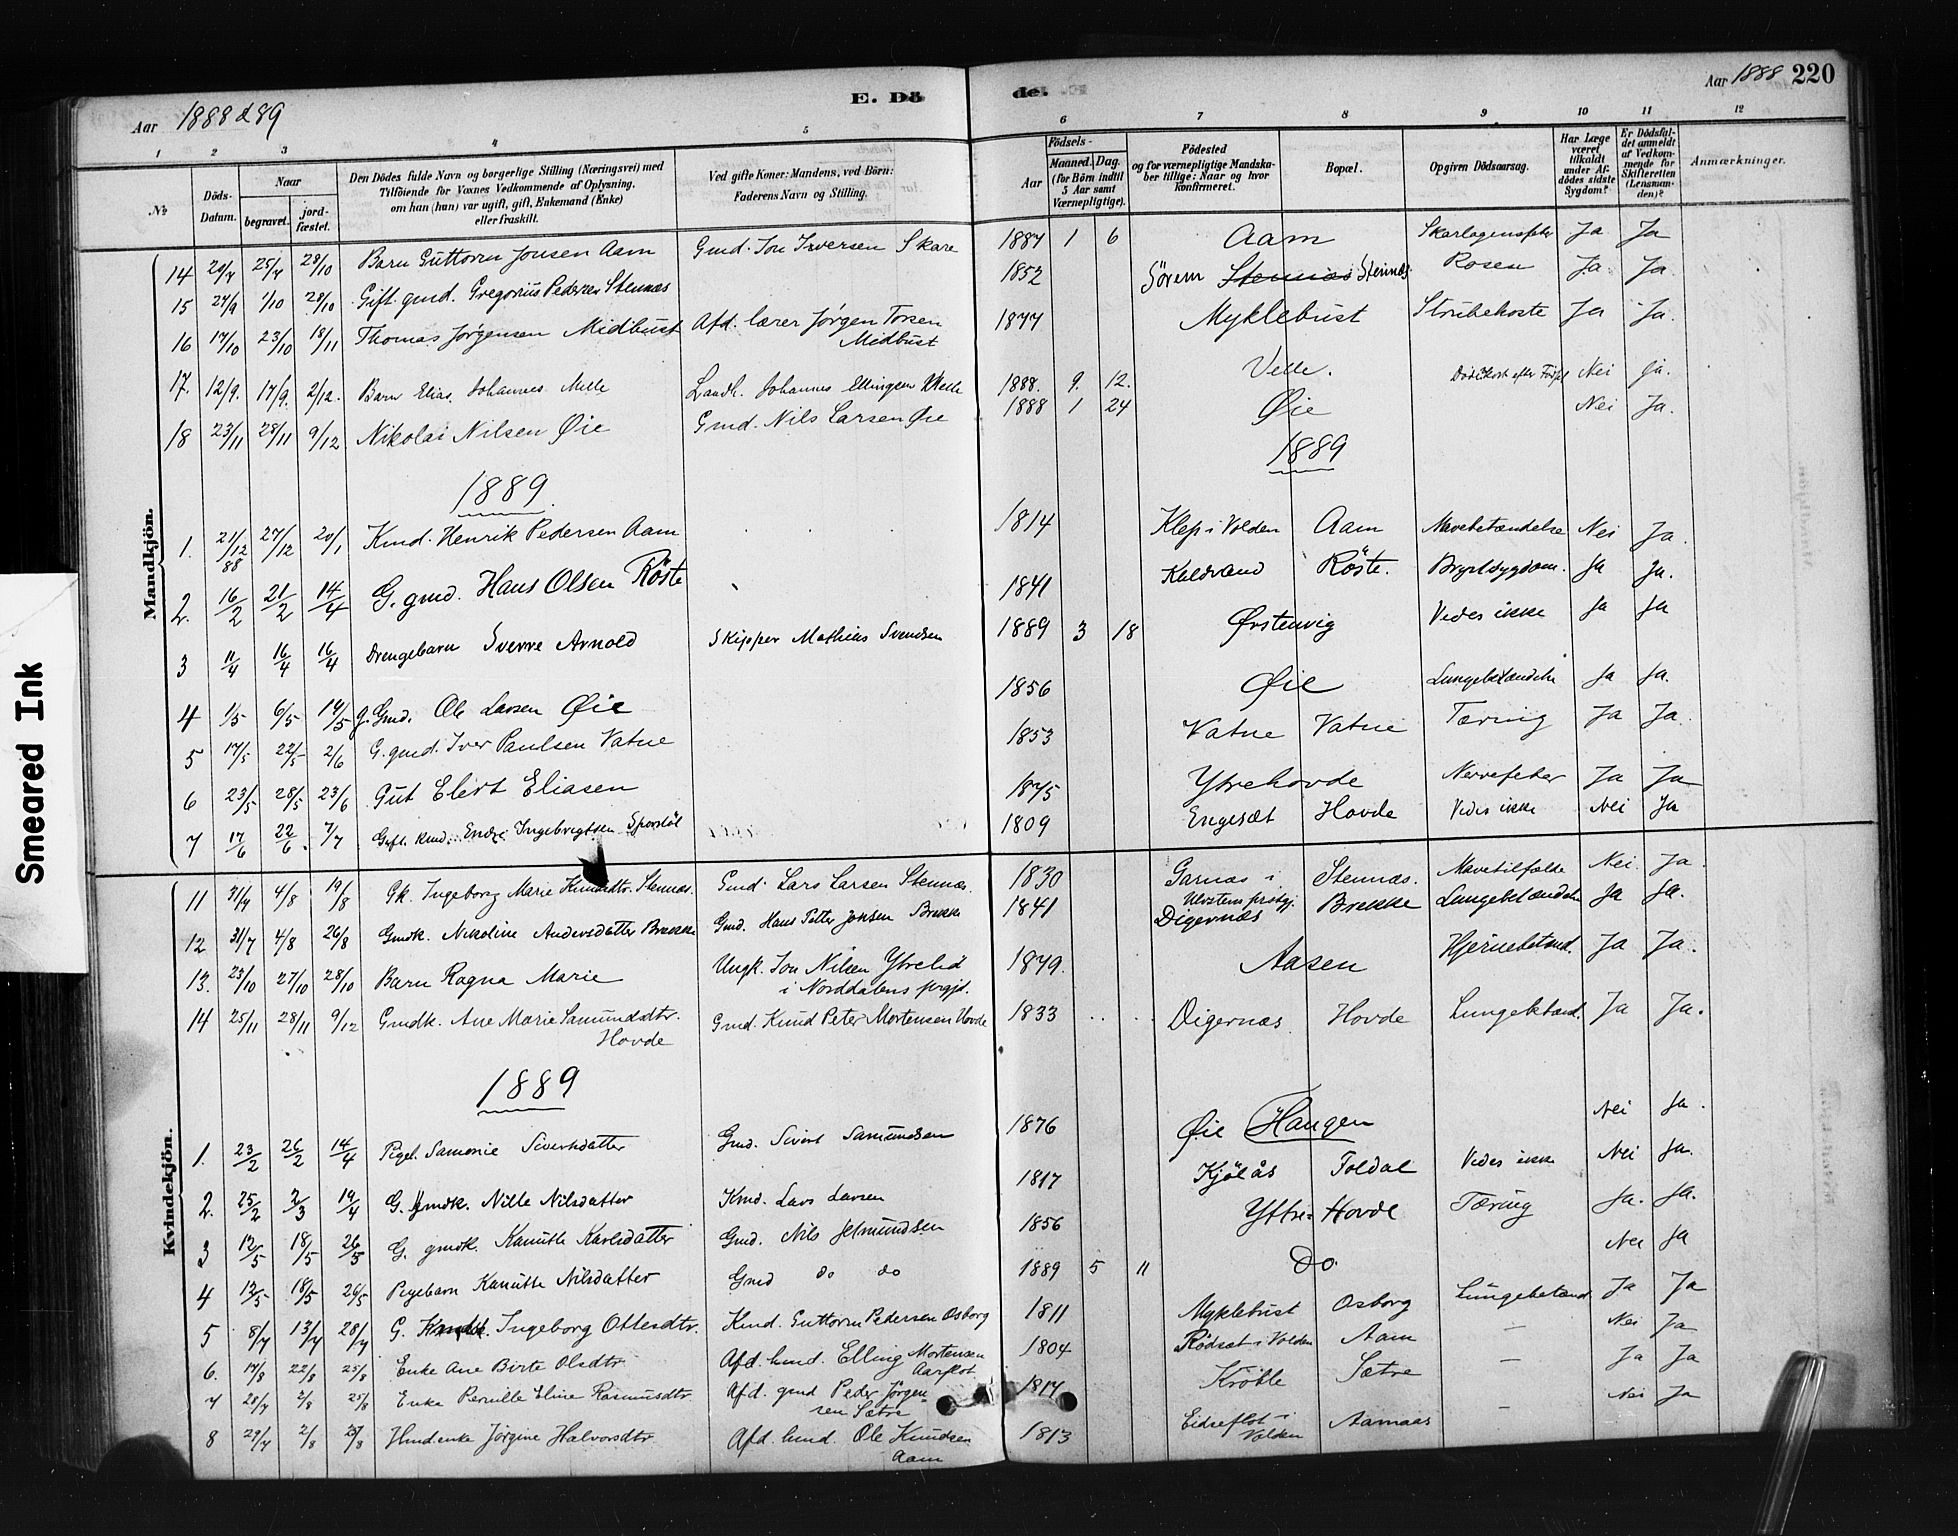 Aar 1888 & 89
E. Dö
de.
Aar 1888 220
1 2 3 4 5 6 7 8 9 10 11 12
No
Döds-Datum.
Naar
begravet.
jord-fæstet.
Den Dödes fulde Navn og borgerlige Stilling (Næringsvei) med
Tilföiende for Voxnes Vedkommende af Oplysning,
om han (hun) var ugift, gift, Enkemand (Enke)
eller fraskilt.
Ved gifte Koner: Mandens, ved Börn:
Faderens Navn og Stilling.
Födsels-
Aar
Maaned. Dag.
(for Börn indtil
5 Aar samt
Værnepligtige).
Födested
og for værnepligtige Mandska-
ber tillige: Naar og hvor
konfirmeret.
Bopæl.
Opgiven Dödsaarsag.
Har Læge
været
tilkaldt
under Af-
dödes sidste
Sygdom?
Er Dödsfal-
det anmeldt
af Vedkom-
mende for
Skifteretten
(Lensman-
den)?
Anmærkninger.
Mandkjön.
14 20/7 25/7 28/10 Barn Guttorm Jonsen Aam Gmd. Jon Iversen Skare 1887 1 6 Aam Skarlagensfeber Ja Ja
15 27/9 1/10 28/10 Gift gmd. Gregorius Pedersen Stennæs 1852 Sörem Stennæs Stennæs Rosen Ja Ja.
16 17/10 23/10 18/11 Thomas Jørgensen Midbust Afd. lærer Jørgen Torsen Midbust 1877 Myklebust Strubehoste Ja Ja.
17. 12/9. 17/9. 2/12. Barn Elias Johannes Melle Landh. Johannes Ellingsen Melle 1888. 9. 12. Velle. Död kort efter Nei Ja.
18 23/11 28/11 9/12 Nikolai Nilsen Øie Gmd. Nils Larsen Øie 1888 1 24 Øie Nei Ja.
1889. 1889
1. 21/12 88 27/12 20/1 Kmd. Henrik Pedersen Aam 1814 Klep i Volden Aam Mavebetændelse Nei Ja.
2. 16/2 21/2 14/4 G. gmd. Hans Olsen Röste 1841 Kaldvand Röste. Brystsygdom. Ja Ja.
3 11/4 16/4 16/4 Drengebarn Sverre Arnold Skipper Mathias Svendsen 1889 3 18 Ørstenvig Vides ikke Ja Ja
4 1/5 6/5 19/5 g. Gmd. Ole Larsen Øie 1856 Øie Lungebetændelse Ja Ja.
5 17/5 22/5 2/6 G. gmd. Iver Paulsen Vatne 1853 Vatne Vatne Tæring Ja Ja.
6 23/5 28/5 23/6 Gut Elert Eliasen 1875 Ytrehovde Nervefeber Ja Ja
7 17/6 22/6. 7/7 Gift. kmd. Endre Ingebrigtsen 1809 Engesæt Hovde Vides ikke Nei Ja
Kvindekjön.
11 31/7 4/8 19/8 Gk. Ingeborg Marie Knudsdtr. Stennæs. Gmd. Lars Larsen Stennæs. 1830 Garnæs i Ulvstens prstgj. Stennæs. Mavetilfælde Nei. Ja.
12 31/7 4/8 26/8 Gmdk. Nikoline Andersdatter Brekke Gmd. Hans Petter Jonsen Brekke 1841 Digernæs Brekke Lungebetændelse Ja Ja.
13. 23/10 27/10 28/10 Barn Ragna Marie Ungk. Jon Nilsen Ytrelid i Norddalens prgjd. 1879. Aasen Hjernebetænd. Ja Ja.
14 25/11 28/11 9/12 Gmdk. Ane Marie Samundsdtr. Hovde Gmd. Knud Peter Mortensen Hovde 1833 Digernæs. Hovde Lungebetænd. Ja Ja.
1889
1. 23/2 26/2 14/4 Pige. Samonie Sivertsdatter Gmd. Sivert Samundsen 1876 Øie Haugen Nei Ja.
2. 25/2 2/3 19/4 G. gmdk. Nille Nilsdatter Kmd. Lars Larsen 1817 Kjölås Foldal Vides ikke Nei Ja.
3 12/5 18/5 26/5 G. gmdk. Kanutte Karlsdatter Gmd. Nils Jetmundsen 1856 Yttre-Hovde Tæring Ja. Ja.
4 12/5 18/5 26/5 Pigebarn Kanutte Nilsdatter Gmd do do 1889 5 11 Do. Nei Ja
5 8/7 13/7 28/7 G. Kmdk. Ingeborg Ottesdtr. Kmd. Guttorm Pedersen Osborg 1811 Myklebust Osborg Lungebetænd. Ja Ja
6. 17/8 22/8 25/8 Enke Ane Birte Olsdtr. Afd. hmd. Elling Mortensen Aarflot 1804 Rödsæt i Volden Aam — Nei Ja
7 28/7 2/8 25/8 Enke Pernille Eline Rasmusdtr. Afd. gmd Peder Jörgensen Sætre 1817 Kröble Sætre — Ja Ja
8 29/7 2/8 25/8 Hmdenke Jörgine Halvorsdtr. Afd. hmd. Ole Knudsen Aam 1813 Eidseflot i Volden Aamaas — Nei Ja
Smeared Ink